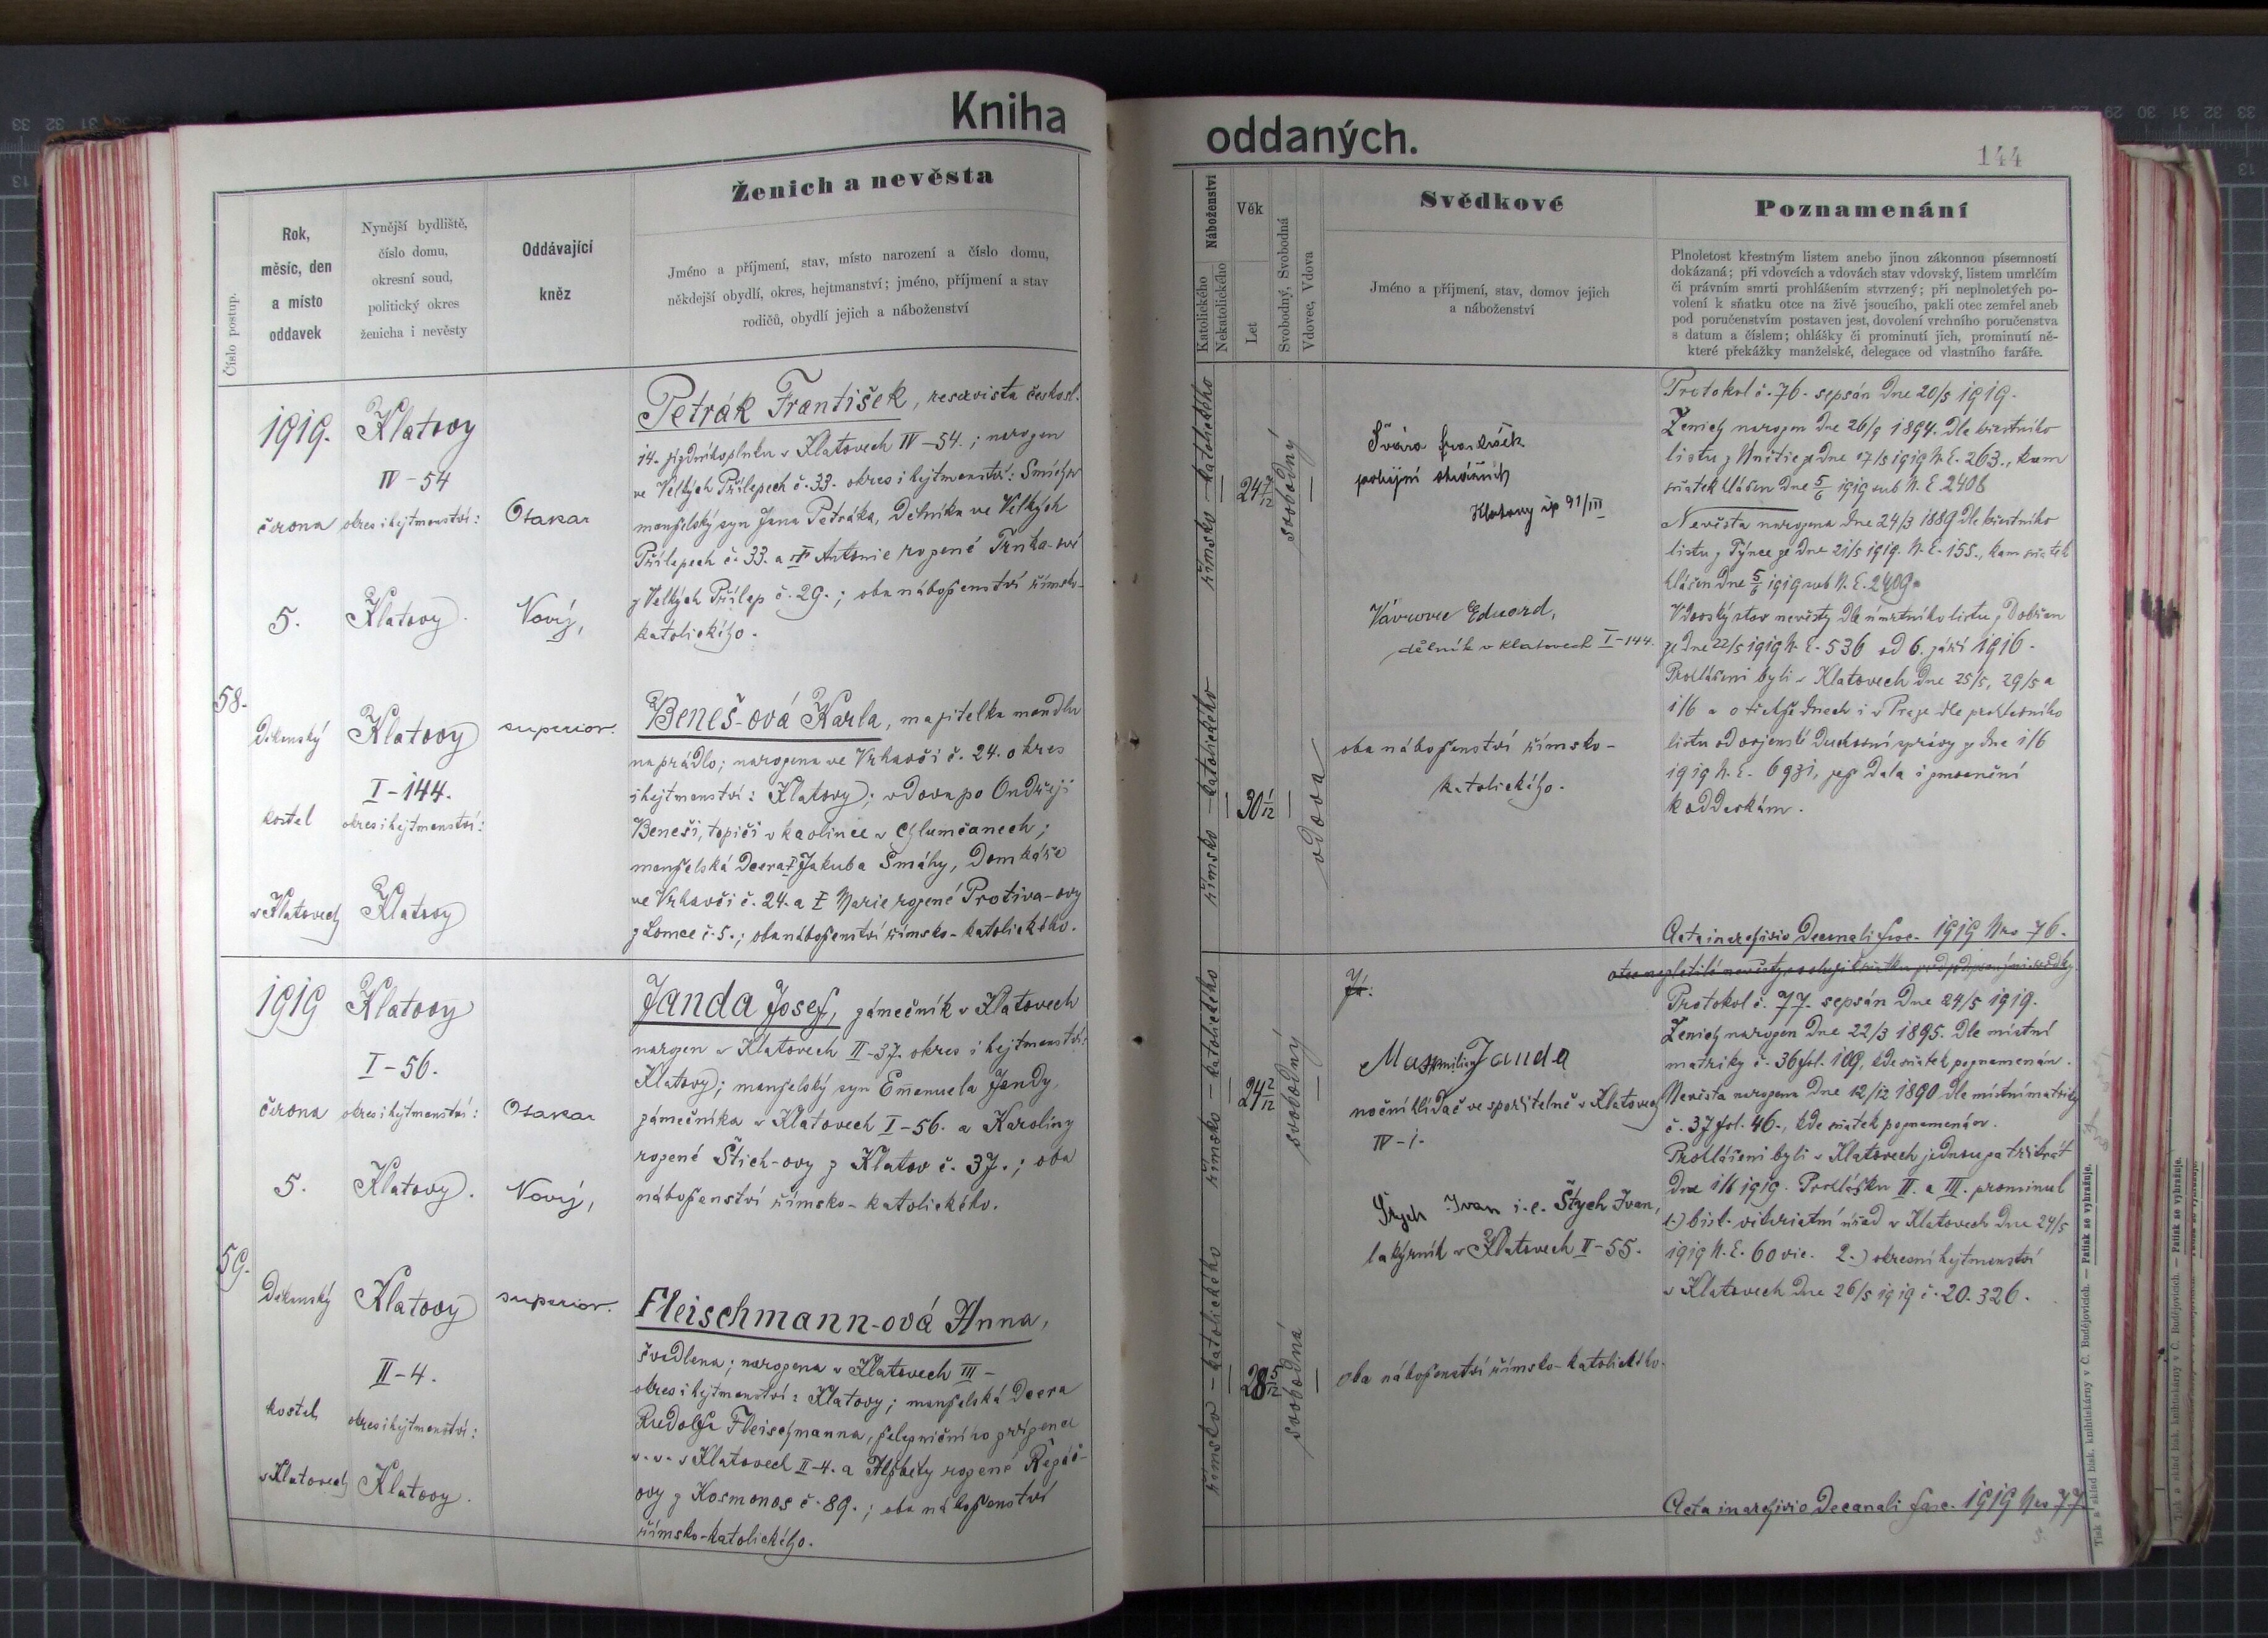 Kniha
Číslo postup.
Rok,
měsíc, den
a místo
oddavek
Nynější bydliště,
číslo domu,
okresní soud,
politický okres
ženicha i nevěsty
Oddávající
kněz
Ženich a nevěsta
Jméno a příjmení, stav, místo narození a číslo domu,
někdejší obydlí, okres, hejtmanství; jméno, příjmení a stav
rodičů, obydlí jejich a náboženství
58.
1919.
června
5.
Děkanský
kostel
v Klatovech
Klatovy
IV-54
okres i hejtmanství:
Klatovy.
Klatovy
I-144.
okres i hejtmanství:
Klatovy
Otakar
Nový,
superior.
Petrák František, reservista českosl.
14. v Klatovech IV-54.; narozen
ve Velkých Přílepech č. 33. okres i hejtmanství: Smíchov
manželský syn Jana Petráka, dělníka ve Velkých
Přílepech č. 33. a Antonie rozené Trnka-
z Velkých Přílep č. 29.; oba náboženství římsko-
katolického.
Beneš-ová Karla, majitelka mandlu
na prádlo; narozena ve Vrhavči č. 24. okres
i hejtmanství: Klatovy; vdova po Ondřeji
Beneši, topiči v kaolince v Chlumčanech;
manželská dcera † Jakuba Smáhy, domkáře
ve Vrhavči č. 24. a † Marie rozené Protiva-ovy
z Lomce č. 5.; oba náboženství římsko-katolického.
59.
1919
června
5.
Děkanský
kostel
v Klatovech
Klatovy
I-56.
okres i hejtmanství:
Klatovy.
Klatovy
II-4.
okres i hejtmanství:
Klatovy.
Otakar
Nový,
superior.
Janda Josef, zámečník v Klatovech
narozen v Klatovech II-37. okres i hejtmanství:
Klatovy; manželský syn Emanuela Jandy,
zámečníka v Klatovech I-56. a Karoliny
rozené Štich-ovy z Klatov č. 37.; oba
náboženství římsko-katolického.
Fleischmann-ová Anna,
švadlena; narozena v Klatovech III-
okres i hejtmanství: Klatovy; manželská dcera
Rudolfa Fleischmanna, železničního zřízence
v. v. v Klatovech II-4. a Alžběty rozené
ovy z Kosmonos č. 89.; oba náboženství
římsko-katolického.
oddaných.
144
Náboženství
Katolického
Nekatolického
Věk
Let
Svobodný, Svobodná
Vdovec, Vdova
Svědkové
Jméno a příjmení, stav, domov jejich
a náboženství
Poznamenání
Plnoletost křestným listem anebo jinou zákonnou písemností
dokázaná; při vdovcích a vdovách stav vdovský, listem umrlčím
či právním smrti prohlášením stvrzený; při neplnoletých po-
volení k sňatku otce na živě jsoucího, pakli otec zemřel aneb
pod poručenstvím postaven jest, dovolení vrchního poručenstva
s datum a číslem; ohlášky či prominutí jich, prominutí ně-
které překážky manželské, delegace od vlastního faráře.
římsko-katolického
24
svobodný
římsko-katolického
30 1/12
vdova
Švára František
policejní strážník
Klatovy čp 91/III
Vávrovec Eduard,
dělník v Klatovech I-144.
oba náboženství římsko-
katolického.
Protokol č. 76. sepsán dne 20/5 1919.
Ženich narozen dne 26/9 1894. dle křestního
listu z ze dne 17/5 1919 N. E. 263., kam
sňatek hlášen dne 5/6 1919 sub N. E. 2408
Nevěsta narozena dne 24/3 1889 dle křestního
listu z Týnce ze dne 21/5 1919. N. E. 155., kam sňatek
hlášen dne 5/6 1919 sub N. E. 2409.
Vdovský stav nevěsty dle úmrtního listu z Dobřan
ze dne 22/5 1919 N. E. 536 od 6. září 1916.
Prohlášeni byli v Klatovech dne 25/5, 29/5 a
1/6 a o týchže dnech i v Praze dle prohlašního
listu od vojenské duchovní správy ze dne 1/6
1919 N. E. 6931, jež dala i zmocnění
k oddavkám.
Acta in archivio Decanali fasc. 1919 Nro 76.
římsko-katolického
24 2/12
svobodný
římsko-katolického
28 5/12
svobodná
Já:
Maxmilian Janda
noční hlídač ve spořitelně v Klatovech
IV-1.
Štych Ivan i.e. Štych Ivan,
lakýrník v Klatovech II-55.
oba náboženství římsko-katolického.
Protokol č. 77. sepsán dne 24/5 1919.
Ženich narozen dne 22/3 1895. dle místní
matriky č. 36 fol. 109, kde sňatek poznamenán.
Nevěsta narozena dne 12/12 1890 dle místní matriky
č. 37 fol. 46., kde sňatek poznamenán.
Prohlášeni byli v Klatovech jednou za třikrát
dne 1/6 1919. Prohlášku II. a III. prominul
1.) bisk. vikariatní úřad v Klatovech dne 24/5
1919 N. E. 60 vic. 2.) okresní hejtmanství
v Klatovech dne 26/5 1919 č. 20.326.
Acta in archivio Decanali fasc. 1919 Nro 77
Tisk a sklad bisk. knihtiskárny v Č. Budějovicích. — Patisk se vyhražuje.